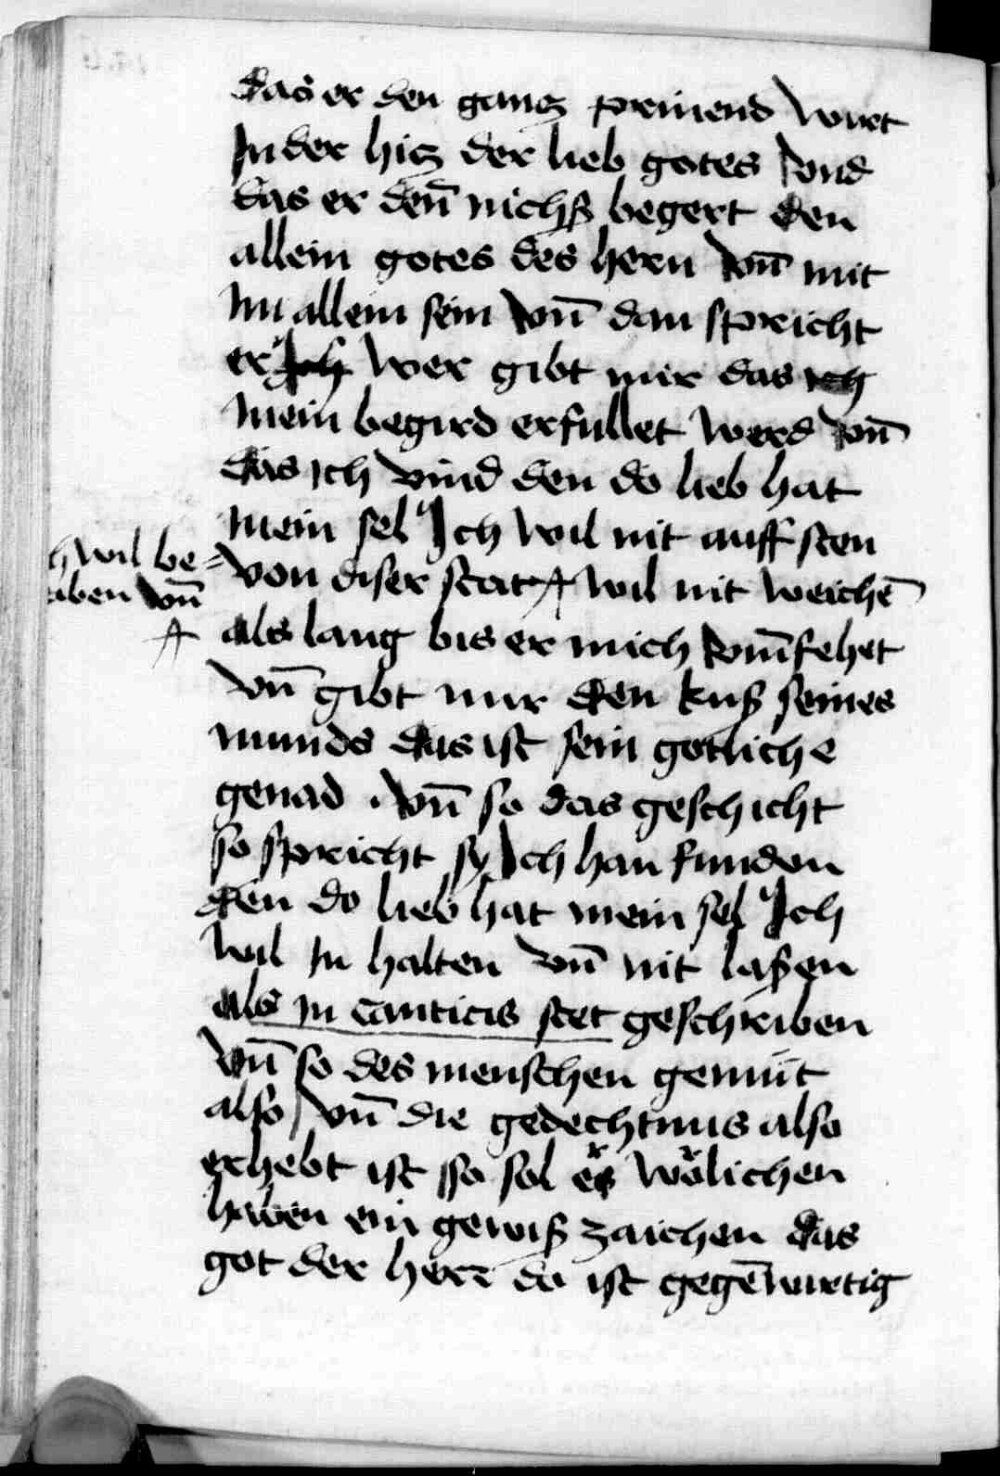 das er den gantz prinend wirt
In der hitz der lieb gotes vnd
das er deñ nichß begert den
allein gotes des hern vñ mit
Im allein sein vñ dan spricht
er Ich wer gibt mir das ich
mein begird erfullet werd vñ
das ich vind den do lieb hat
mein sel Ich wil nit auff sten
von diser stat wil nit weichē
als lang bis er mich vmfehet
vñ gibt mir den kuß seines
munds das ist sein gotliche
genad . vñ so das geschicht
so spricht sy Ich han funden
den do lieb hat mein sel Ich
wil In halten vñ nit laßen
als in canticis stet geschriben
vñ so des menschen gemüt
also vñ die gedechtnus also
erhebt ist so sol er wölichen
haben ein gewiß zaichen das
got der herr do ist gegēwirtig
h wil be=
iben vñ